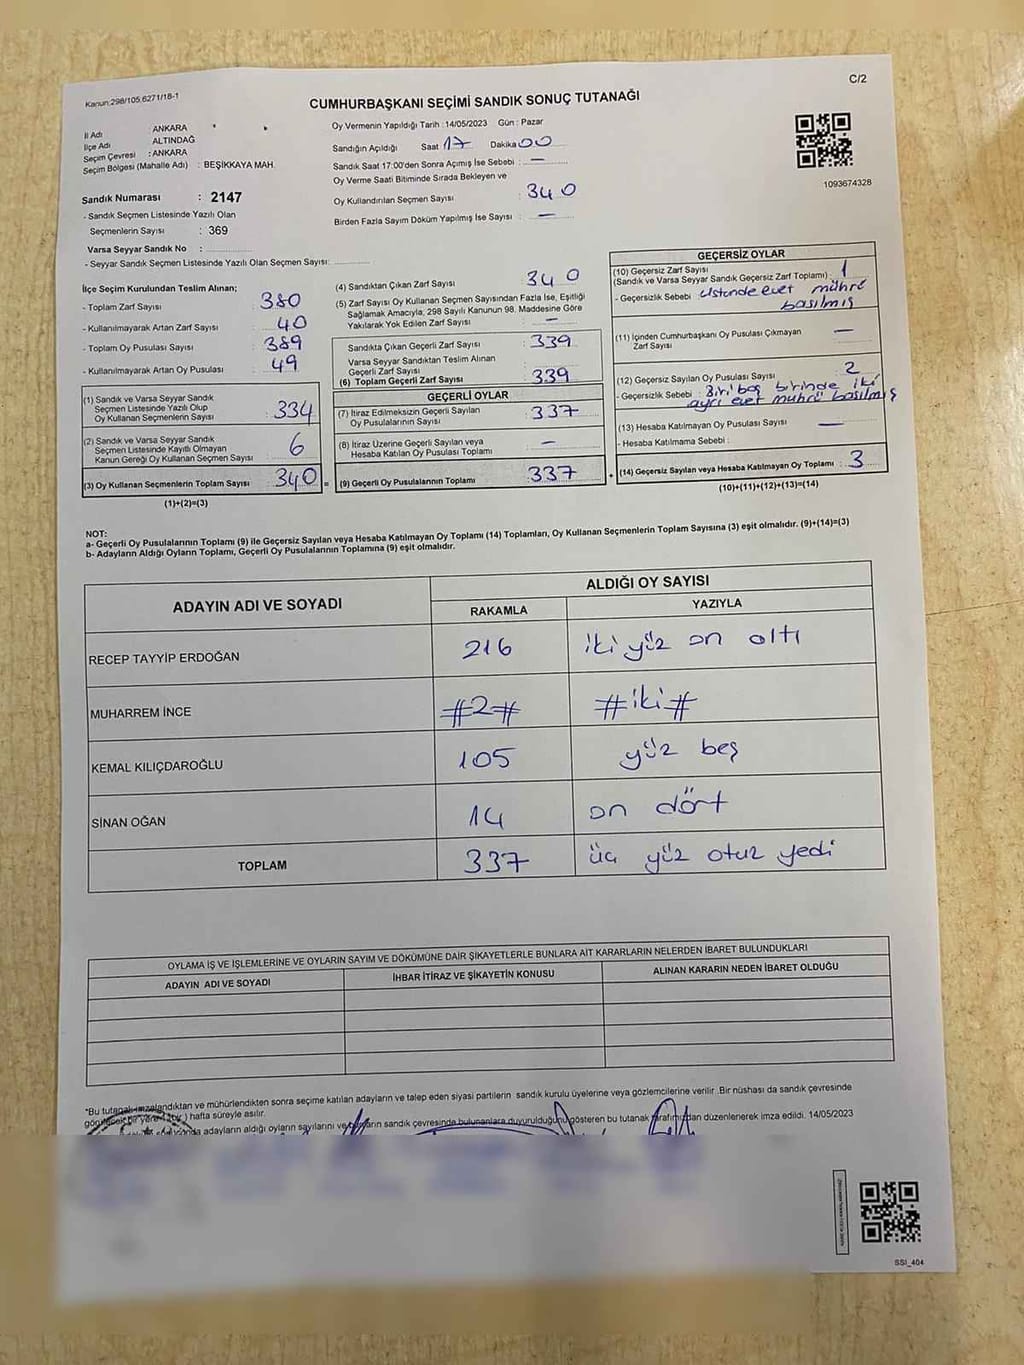 Kanun:298/105,6271/18-1
C/2
CUMHURBAŞKANI SEÇİMİ SANDIK SONUÇ TUTANAĞI
İl Adı ANKARA
İlçe Adı ALTINDAĞ
Seçim Çevresi : ANKARA
Seçim Bölgesi (Mahalle Adı) : BEŞİKKAYA MAH.
Sandık Numarası : 2147
- Sandık Seçmen Listesinde Yazılı Olan
Seçmenlerin Sayısı : 369
Varsa Seyyar Sandık No :
- Seyyar Sandık Seçmen Listesinde Yazılı Olan Seçmen Sayısı:
Oy Vermenin Yapıldığı Tarih : 14/05/2023 Gün : Pazar
Sandığın Açıldığı Saat 17 Dakika 00
Sandık Saat 17:00'den Sonra Açımış İse Sebebi : —
Oy Verme Saati Bitiminde Sırada Bekleyen ve
Oy Kullandırılan Seçmen Sayısı : 340
Birden Fazla Sayım Döküm Yapılmış İse Sayısı : —
1093674328
İlçe Seçim Kurulundan Teslim Alınan;
- Toplam Zarf Sayısı : 380
- Kullanılmayarak Artan Zarf Sayısı : 40
- Toplam Oy Pusulası Sayısı : 389
- Kullanılmayarak Artan Oy Pusulası : 49
(1) Sandık ve Varsa Seyyar Sandık
Seçmen Listesinde Yazılı Olup
Oy Kullanan Seçmenlerin Sayısı : 334
(2) Sandık ve Varsa Seyyar Sandık
Seçmen Listesinde Kayıtlı Olmayan
Kanun Gereği Oy Kullanan Seçmen Sayısı : 6
(3) Oy Kullanan Seçmenlerin Toplam Sayısı : 340
(1)+(2)=(3)
(4) Sandıktan Çıkan Zarf Sayısı : 340
(5) Zarf Sayısı Oy Kullanan Seçmen Sayısından Fazla İse, Eşitliği
Sağlamak Amacıyla, 298 Sayılı Kanunun 98. Maddesine Göre
Yakılarak Yok Edilen Zarf Sayısı : —
Sandıkta Çıkan Geçerli Zarf Sayısı : 339
Varsa Seyyar Sandıktan Teslim Alınan
Geçerli Zarf Sayısı :
(6) Toplam Geçerli Zarf Sayısı : 339
GEÇERLİ OYLAR
(7) İtiraz Edilmeksizin Geçerli Sayılan
Oy Pusulalarının Sayısı : 337
(8) İtiraz Üzerine Geçerli Sayılan veya
Hesaba Katılan Oy Pusulası Toplamı : —
= (9) Geçerli Oy Pusulalarının Toplamı : 337
GEÇERSİZ OYLAR
(10) Geçersiz Zarf Sayısı
(Sandık ve Varsa Seyyar Sandık Geçersiz Zarf Toplamı) : 1
- Geçersizlik Sebebi : üstünde evet mührü
basılmış
(11) İçinden Cumhurbaşkanı Oy Pusulası Çıkmayan
Zarf Sayısı —
(12) Geçersiz Sayılan Oy Pusulası Sayısı : 2
- Geçersizlik Sebebi : Biri boş birinde iki
ayrı evet mührü basılmış
(13) Hesaba Katılmayan Oy Pusulası Sayısı : —
- Hesaba Katılmama Sebebi :
+ (14) Geçersiz Sayılan veya Hesaba Katılmayan Oy Toplamı : 3
(10)+(11)+(12)+(13)=(14)
NOT:
a- Geçerli Oy Pusulalarının Toplamı (9) ile Geçersiz Sayılan veya Hesaba Katılmayan Oy Toplamı (14) Toplamları, Oy Kullanan Seçmenlerin Toplam Sayısına (3) eşit olmalıdır. (9)+(14)=(3)
b- Adayların Aldığı Oyların Toplamı, Geçerli Oy Pusulalarının Toplamına (9) eşit olmalıdır.
ADAYIN ADI VE SOYADI
ALDIĞI OY SAYISI
RAKAMLA YAZIYLA
RECEP TAYYİP ERDOĞAN 216 iki yüz on altı
MUHARREM İNCE #2# #iki#
KEMAL KILIÇDAROĞLU 105 yüz beş
SİNAN OĞAN 14 on dört
TOPLAM 337 üç yüz otuz yedi
OYLAMA İŞ VE İŞLEMLERİNE VE OYLARIN SAYIM VE DÖKÜMÜNE DAİR ŞİKAYETLERLE BUNLARA AİT KARARLARIN NELERDEN İBARET BULUNDUKLARI
ADAYIN ADI VE SOYADI İHBAR İTİRAZ VE ŞİKAYETİN KONUSU ALINAN KARARIN NEDEN İBARET OLDUĞU
*Bu tutanak imzalandıktan ve mühürlendikten sonra seçime katılan adayların ve talep eden siyasi partilerin sandık kurulu üyelerine veya gözlemcilerine verilir .Bir nüshası da sandık çevresinde
hafta süreyle asılır.
adayların aldığı oyların sayılarını ve bunların sandık çevresinde bulunanlara duyurulduğunu gösteren bu tutanak tarafımızdan düzenlenerek imza edildi. 14/05/2023
SSI_404